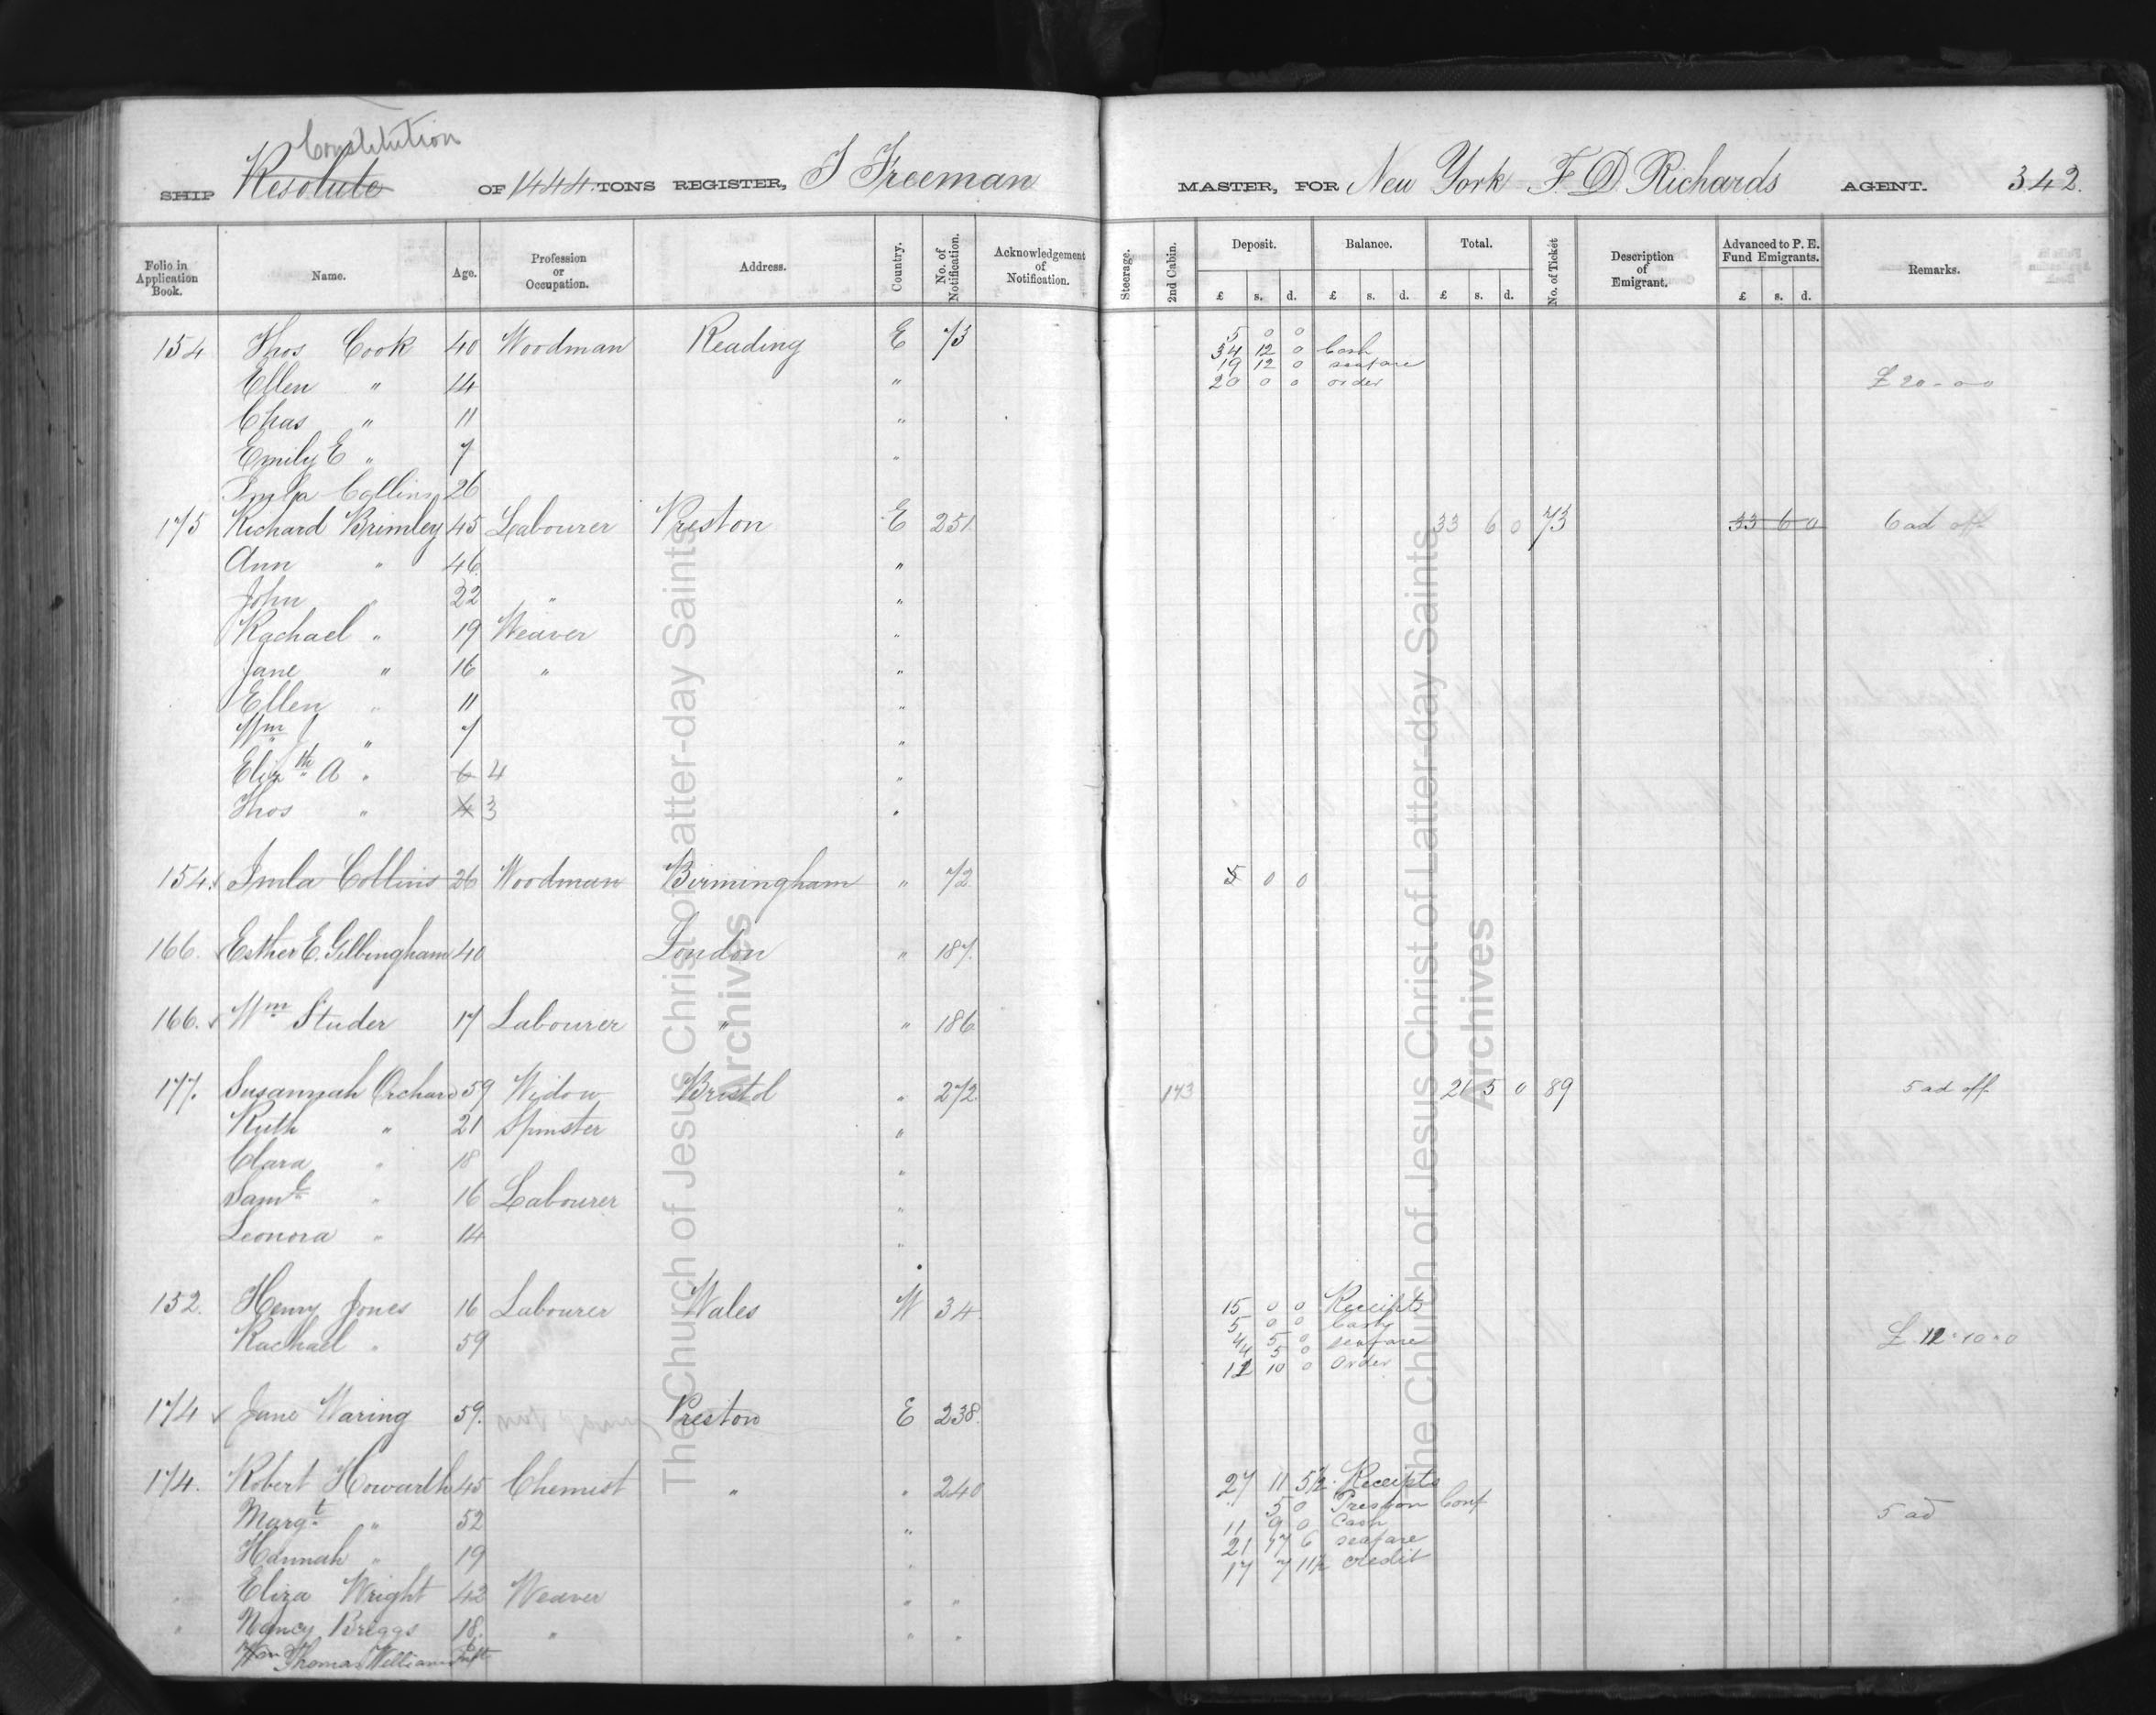 Constitution
SHIP Resolute OF 1444 TONS REGISTER, S Freeman MASTER, FOR New York F. D. Richards AGENT. 342.
Folio in Application Book. Name. Age. Profession or Occupation. Address. Country. No. of Notification. Acknowledgement of Notification. Steerage. 2nd Cabin. Deposit. Balance. Total. No. of Ticket Description of Emigrant. Advanced to P. E. Fund Emigrants. Remarks.
£ s. d. £ s. d. £ s. d. £ s. d.
5 0 0
154 Thos Cook 40 Woodman Reading E 73 34 12 0 Cash
19 12 0 seafare
Ellen " 14 " 20 0 0 order £20-0-0
Chas " 11 "
Emily E " 7 "
Imla Collins 26
175 Richard Brimley 45 Labourer Preston E 251 33 6 0 73 33 6 0 6 ad off
Ann " 46 "
John " 22 " "
Rachael " 19 Weaver "
Jane " 16 " "
Ellen " 11 "
Wm J " 7 "
Elizth A " 6 4 "
Thos " 4 3 "
154. Imla Collins 26 Woodman Birmingham " 72 5 0 0
166. Esther E. Gillingham 40 London " 187.
166. Wm Studer 17 Labourer " " 186
177. Susannah Orchard 59 Widow Bristol " 272 173 21 5 0 89 5 ad off
Ruth " 21 Spinster "
Clara " 18 "
Saml " 16 Labourer "
Leonora " 14 "
152. Henry Jones 16 Labourer Wales W 34. 15 0 0 Receipts
5 0 0 Cash
Rachael " 59 4 5 0 seafare £12-10-0
4 5 0
12 10 0 Order
174 Jane Waring 59. Preston E 238.
174. Robert Howarth 45 Chemist " " 240 27 11 5½ Receipts
5 0 Preston Conf
Margt " 52 " 11 9 0 Cash 5 ad
Hannah " 19 " 21 17 6 seafare
17 7 11½ credit
" Eliza Wright 42 Weaver " "
" Nancy Briggs 18. " " "
Wm Thomas William Inft
The Church of Jesus Christ of Latter-day Saints
Archives
The Church of Jesus Christ of Latter-day Saints
Archives